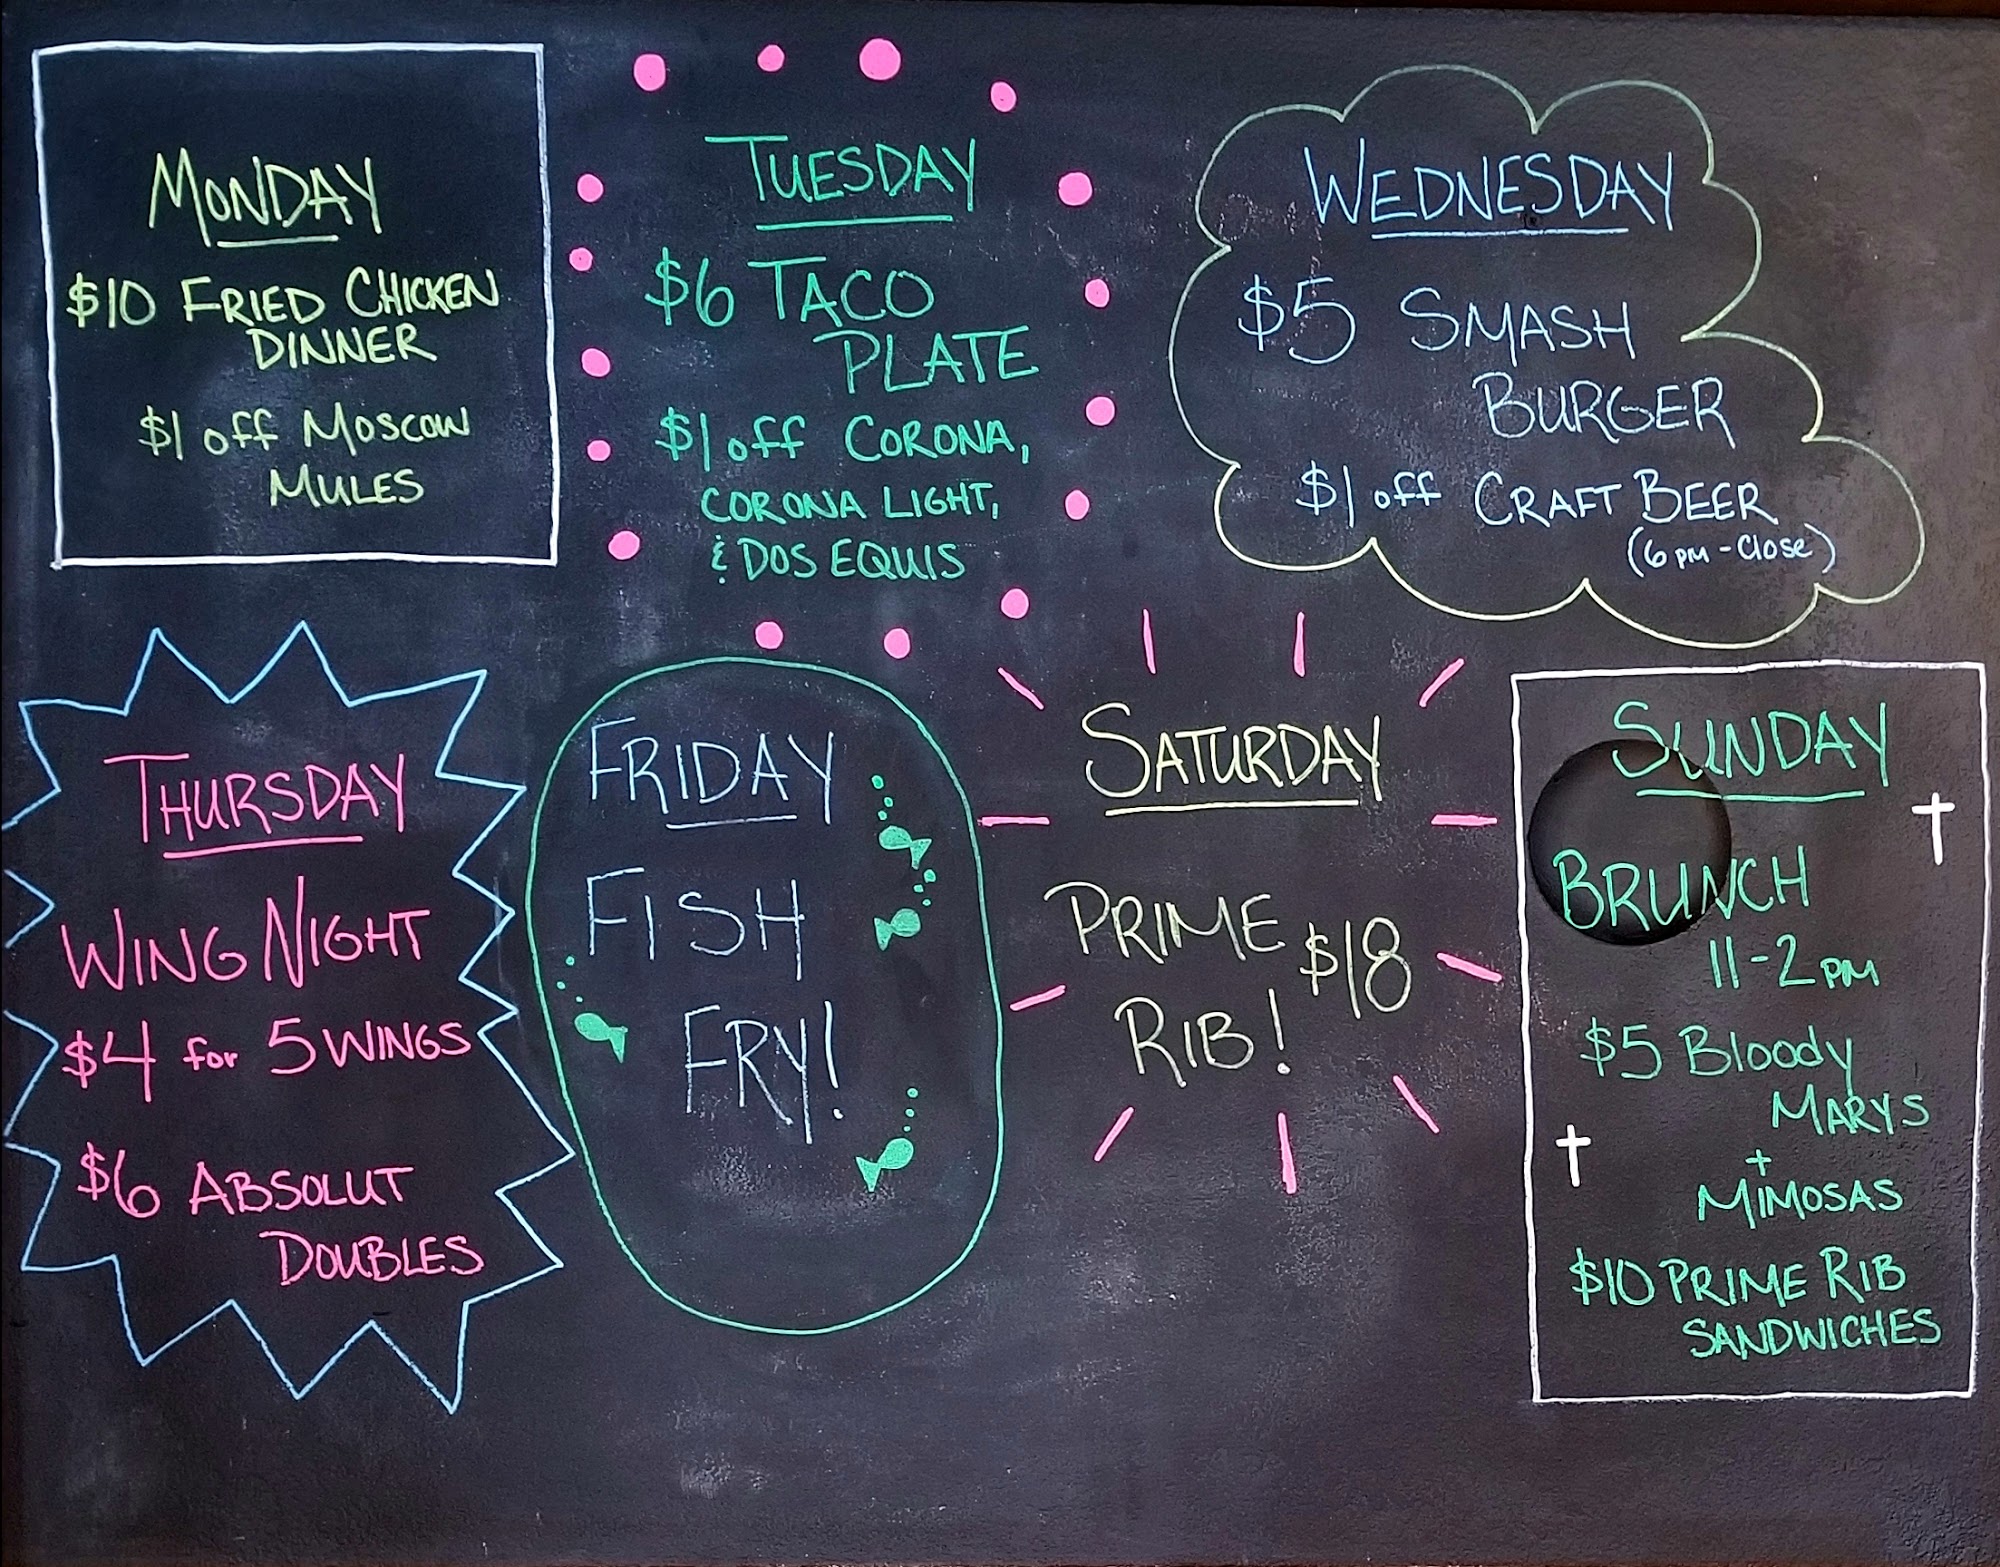 MONDAY
$10 FRIED CHICKEN
DINNER
$1 off MOSCOW
MULES
TUESDAY
$6 TACO
PLATE
$1 off CORONA,
CORONA LIGHT,
& DOS EQUIS
WEDNESDAY
$5 SMASH
BURGER
$1 off CRAFT BEER
(6 PM - Close)
THURSDAY
WING NIGHT
$4 for 5 WINGS
$6 ABSOLUT
DOUBLES
FRIDAY
FISH
FRY!
SATURDAY
PRIME
RIB! $18
SUNDAY
BRUNCH
11-2PM
$5 Bloody
MARYS
+
MIMOSAS
$10 PRIME RIB
SANDWICHES